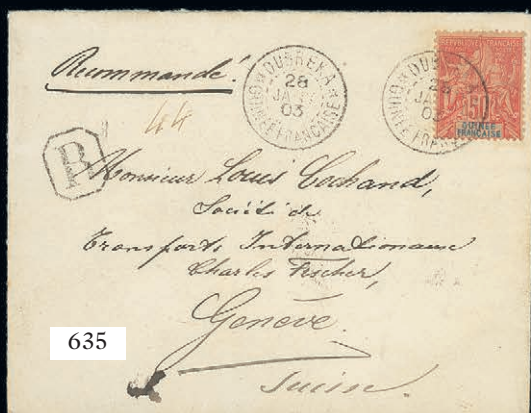 Recommandé.
DUBREKA
28
JA
03
GUINÉE FRANÇAISE
DUB
28
JA
03
GUINÉE FRANÇ
REPUBLIQUE FRANÇAISE
50
GUINÉE
FRANÇAISE
44
R
Monsieur Louis Cochand,
Société de
Transports Internationaux
Charles Fischer,
Genève.
635
Suisse.